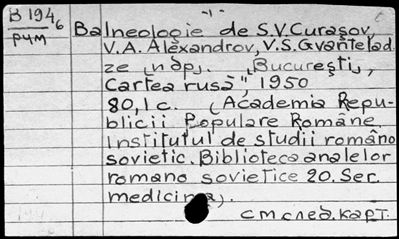 -1-
В 1946
рум
Balneologie de S.V.Curașov,
V.A. Alexandrov, V.S. Gvantelad
ze [и др]. „București,
Cartea rusă”, 1950
80,1 c. (Academia Repu-
blicii Populare Române
Institutul de studii româno
sovietic. Biblioteca analelor
romano sovietice 20. Ser.
medicina).
см след. карт.